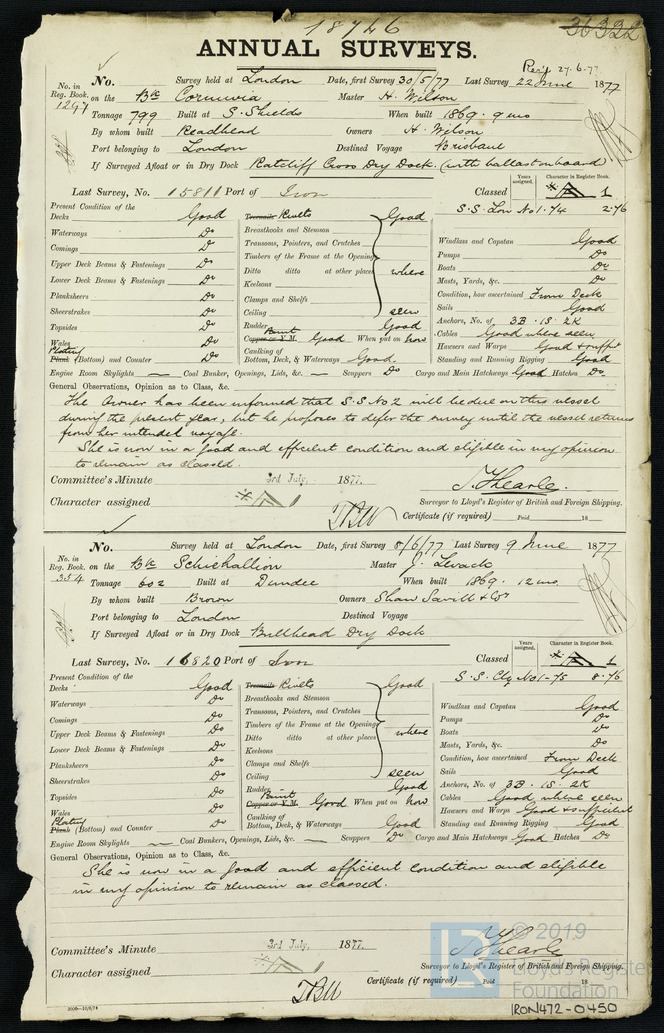 18746
36322
ANNUAL SURVEYS.
Rec'd 27.6.77
No. in Reg. Book. 1297
No. Survey held at London Date, first Survey 30/5/77 Last Survey 22 June 1877
on the Bk Cornuvia Master H. Wilson
Tonnage 799 Built at S. Shields When built 1869. 9 mo
By whom built Readhead Owners H. Wilson
Port belonging to London Destined Voyage Brisbane
If Surveyed Afloat or in Dry Dock Ratcliff Cross Dry Dock. (with ballast on board)
Years assigned. Character in Register Book.
Last Survey, No. 15811 Port of Iron Classed 1
S.S. Lon No 1-74 2-76
Present Condition of the
Decks Good
Waterways Do
Comings Do
Upper Deck Beams & Fastenings Do
Lower Deck Beams & Fastenings Do
Planksheers Do
Sheerstrakes Do
Topsides Do
Wales Do
Plating
Plank (Bottom) and Counter Do
Treenails Rivets Good
Breasthooks and Stemson
Transoms, Pointers, and Crutches
Timbers of the Frame at the Opening
Ditto ditto at other places where
Keelsons
Clamps and Shelfs
Ceiling seen
Rudder Good
Paint
Copper or Y.M. Good When put on now
Caulking of
Bottom, Deck, & Waterways Good.
Windlass and Capstan Good
Pumps Do
Boats Do
Masts, Yards, &c. Do
Condition, how ascertained From Deck
Sails Good
Anchors, No. of 3B. 1S. 2K
Cables Good where seen
Hawsers and Warps Good & suffit
Standing and Running Rigging Good
Engine Room Skylights — Coal Bunkers, Openings, Lids, &c. — Scuppers Do Cargo and Main Hatchways Good Hatches Do.
General Observations, Opinion as to Class, &c.
The Owner has been informed that S.S No 2 will be due on this vessel
during the present year, but he proposes to defer the survey until the vessel returns
from her intended voyage.
She is now in a good and efficient condition and eligible in my opinion
to remain as classed.
Committee's Minute 3rd July, 1877.
T. Hearle.
Character assigned 1
Surveyor to Lloyd's Register of British and Foreign Shipping.
TBW
Certificate (if required) Paid 18
No. in Reg. Book. 354
No. Survey held at London Date, first Survey 8/6/77 Last Survey 9 June 1877
on the Bk Schiehallion Master J. Levack
Tonnage 602 Built at Dundee When built 1869. 12 mo
By whom built Brown Owners Shaw Savill & Co
Port belonging to London Destined Voyage
If Surveyed Afloat or in Dry Dock Bullhead Dry Dock
Years assigned. Character in Register Book.
Last Survey, No. 16820 Port of Iron Classed 1
S.S. Cly No 1-75 8-76
Present Condition of the
Decks Good
Waterways Do
Comings Do
Upper Deck Beams & Fastenings Do
Lower Deck Beams & Fastenings Do
Planksheers Do
Sheerstrakes Do
Topsides Do
Wales Do
Plating
Plank (Bottom) and Counter Do
Treenails Rivets Good
Breasthooks and Stemson
Transoms, Pointers, and Crutches
Timbers of the Frame at the Opening
Ditto ditto at other places where
Keelsons
Clamps and Shelfs
Ceiling seen
Rudder Good
Paint
Copper or Y.M. Good When put on now
Caulking of
Bottom, Deck, & Waterways Good
Windlass and Capstan Good
Pumps Do
Boats Do
Masts, Yards, &c. Do
Condition, how ascertained From Deck
Sails Good
Anchors, No. of 3B. 1S. 2K
Cables Good where seen
Hawsers and Warps Good & sufficient
Standing and Running Rigging Good
Engine Room Skylights — Coal Bunkers, Openings, Lids, &c. — Scuppers Do Cargo and Main Hatchways Good Hatches Do
General Observations, Opinion as to Class, &c.
She is now in a good and efficient condition and eligible
in my opinion to remain as classed.
Committee's Minute 3rd July, 1877.
T. Hearle
Character assigned 1
Surveyor to Lloyd's Register of British and Foreign Shipping.
TBW
Certificate (if required) Paid 18
LR © 2019
Lloyd's Register
Foundation
IRON472-0450